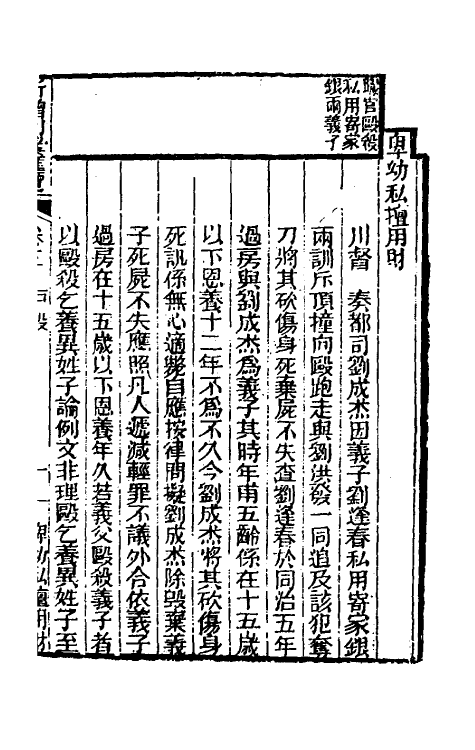 卑幼私擅用財
職官毆役
私用寄家
銀兩義子
川督　奏都司劉成杰因義子劉逢春私用寄家銀
兩訓斥頂撞向毆跑走與劉洪發一同追及該犯奪
刀將其砍傷身死棄屍不失查劉逢春於同治五年
過房與劉成杰為義子其時年甫五齡係在十五歲
以下恩養十二年不為不久今劉成杰將其砍傷身
死訊係無心適斃自應按律問擬劉成杰除毀棄義
子死屍不失應照凡人遞減輕罪不議外合依義子
過房在十五歲以下恩養年久若義父毆殺義子者
以毆殺乞養異姓子論例文非理毆乞養異姓子至
卷二　戶役
一
卑幼私擅用財